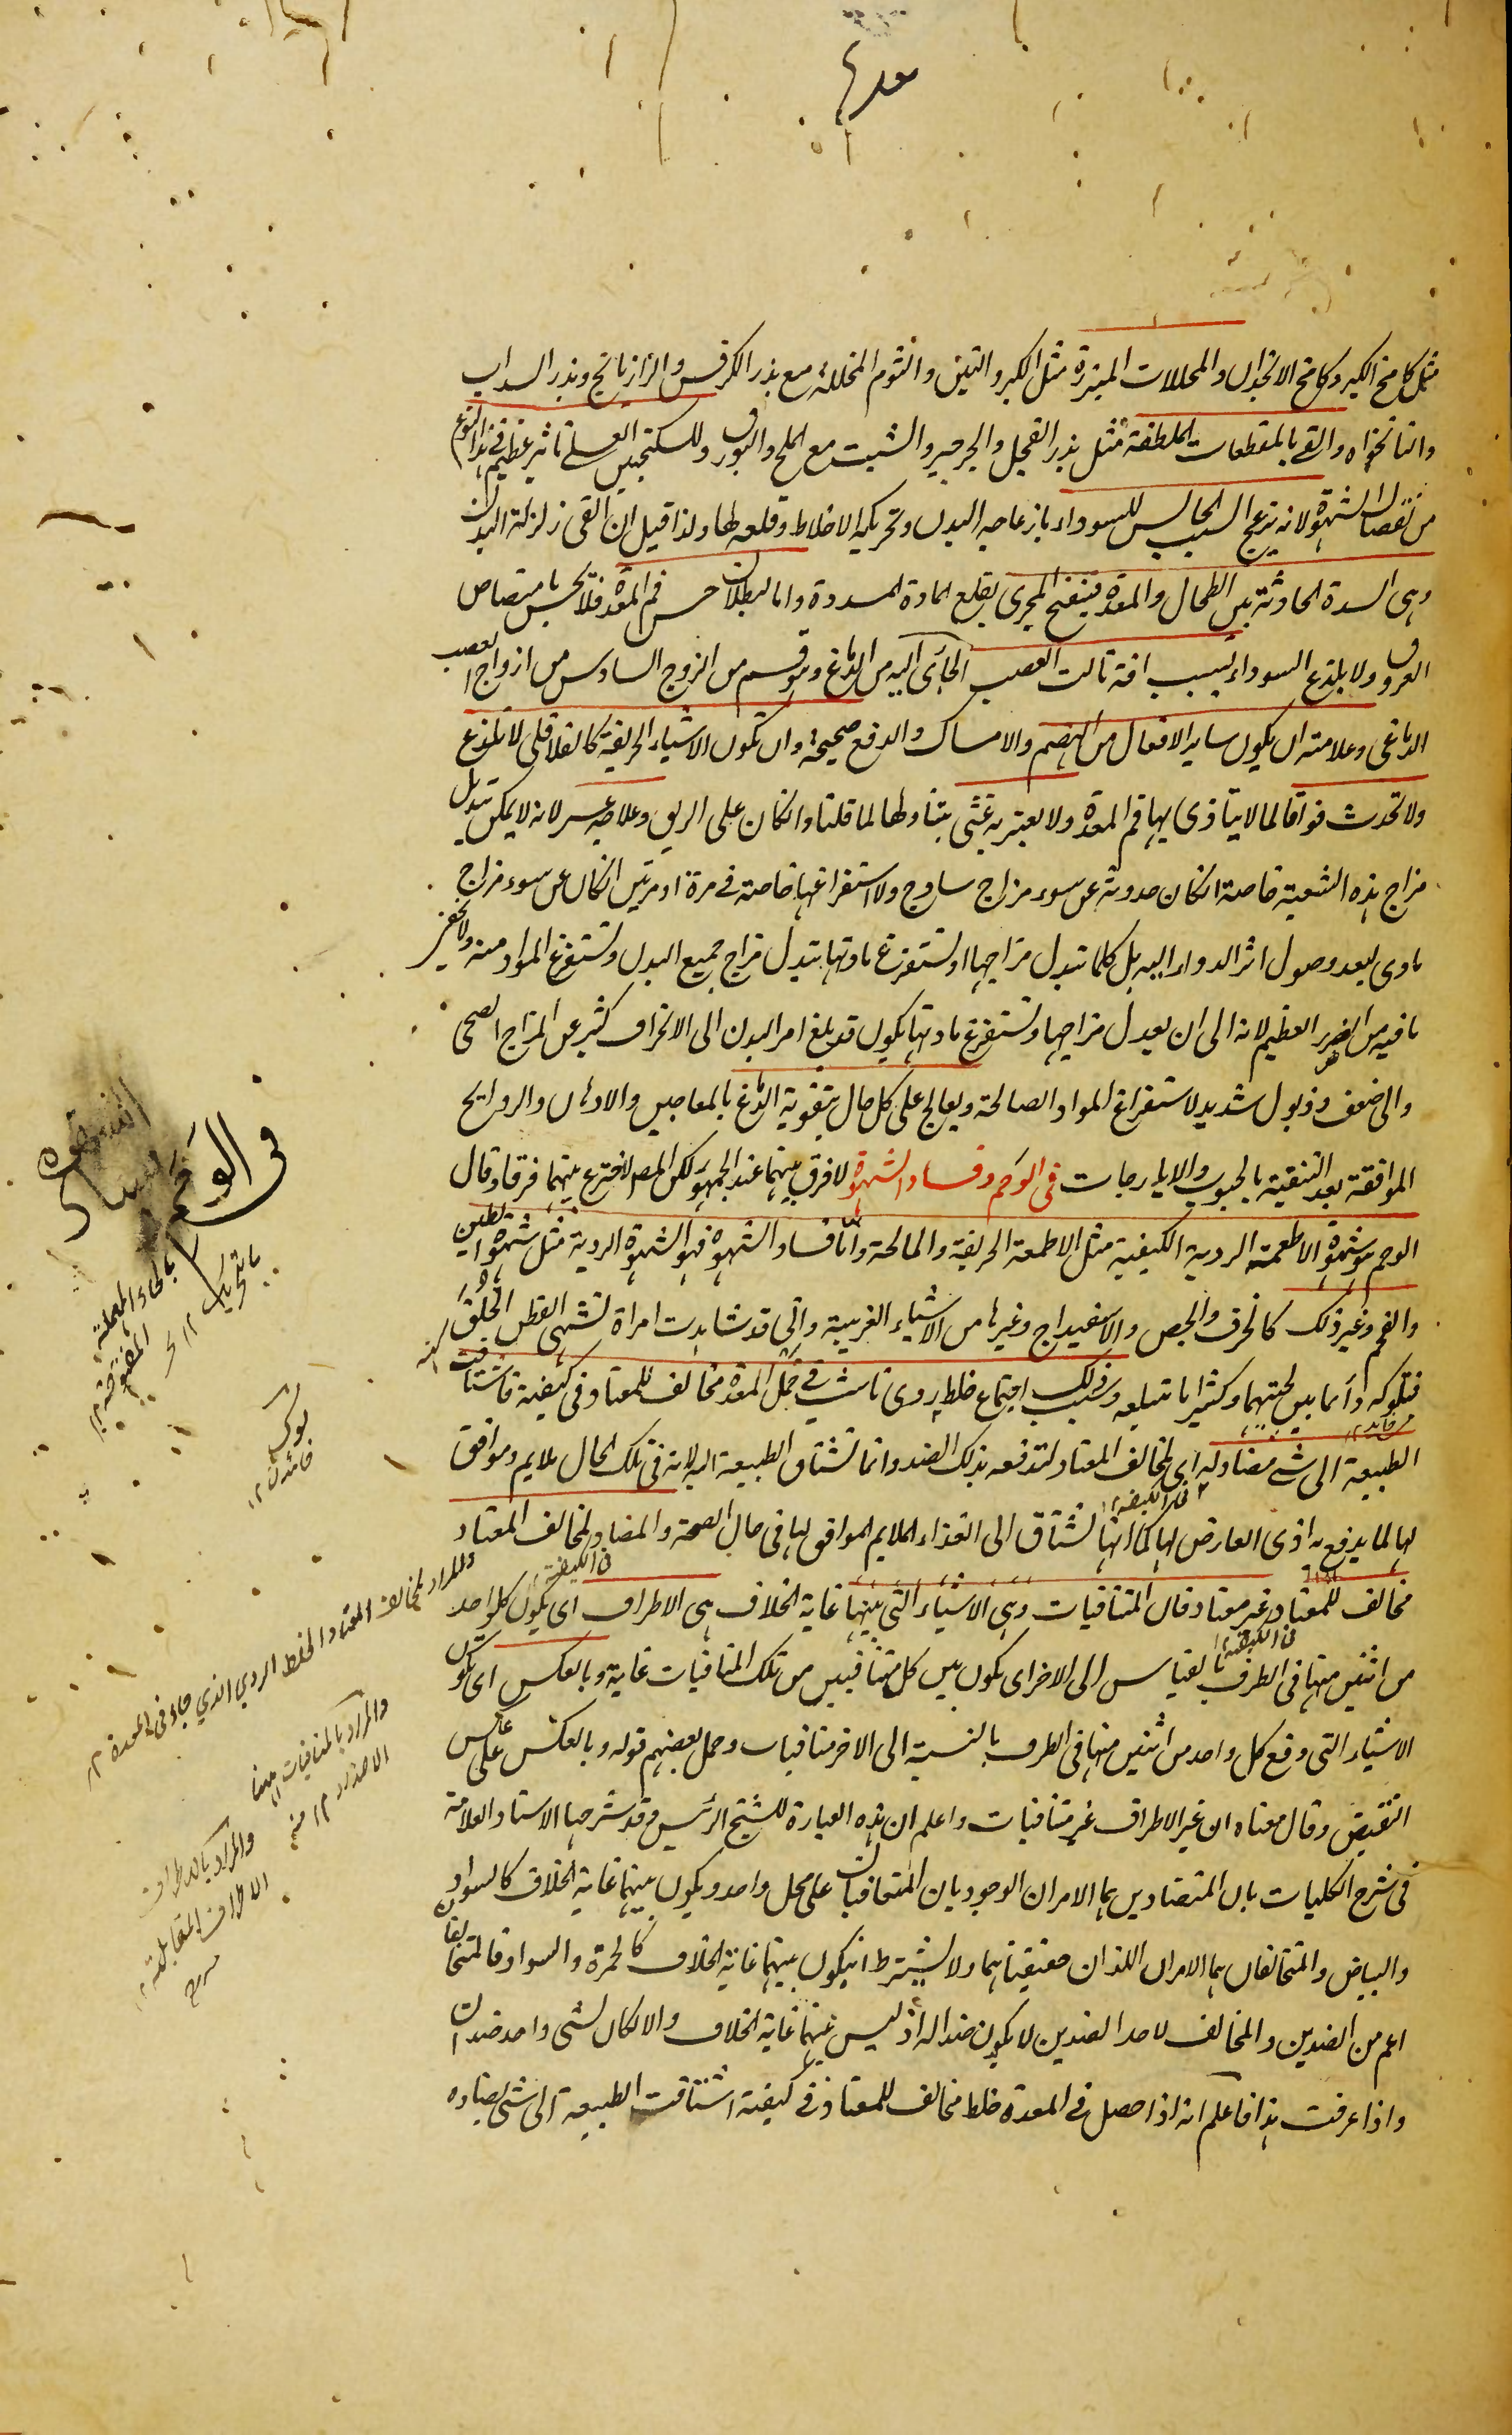 معدہ
مثل كامخ الكبر وكامخ الانجذان والمخللات المبزرة مثل الكبر والتين والثوم المخللة مع بذر الكرفس والرازيانج وبذر السداب
والنانخواه والقے بالمقطعات الملطفة مثل بذر الفجل والجرجير والشبت مع الملح والبورق وللسكنجبين العسلے تاثير عظيم فے هذا النوع
من نقصان الشهوة لانه يزعج السبب الحابس للسوداء بازعاجه البدن وتحريكه الاخلاط وقلعه لها ولذا قيل ان القى زلزلة البدن
وهى السدة الحادثة بين الطحال والمعدة فينفتح المجرى بقلع المادة المسددة واما لبطلان حس فم المعدة فلا تحس بامتصاص
العروق ولا بلذع السوداء بسبب افة نالت العصب الجائى اليه من الدماغ وهو قسم من الزوج السادس من ازواج العصب
الدماغى وعلامته ان يكون ساير الافعال من الهضم والامساك والدفع صحيحة وان تكون الاشياء الحريفة كالفلافلى لا تلذع
ولا تحدث فواقا لما لا يتاذى بها فم المعدة ولا يعتريه غثى بتناولها لما قلنا وان كان على الريق وعلاجه عسر لانه لا يمكن تبديل
مزاج هذه الشعبة خاصة ان كان حدوثه عن سوء مزاج ساذج ولا استفراغها خاصة فے مرة او مرتين ان كان عن سوء مزاج
مادى بعد وصول اثر الدواء اليه بل كلما تبدل مزاجها او تستفرغ مادتها بتبدل مزاج جميع البدن وتستفرغ المواد منه ولا يخفى
ما فيه من الضرر العظيم لانه الى ان يعدل مزاجها وتستفرغ مادتها يكون قد بلغ امر البدن الى الانحراف كثير عن المزاج الصحى
والى ضعف وذبول شديد لاستفراغ المواد الصالحة ويعالج على كل حال بتقوية الدماغ بالمعاجين والادهان والروايح
الموافقة بعد التنقية بالحبوب والايارجات فى الوحم وفساد الشهوة لا فرق بينهما عند الجمهور لكن المص اخترع بينهما فرقا وقال
الوحم هو شهوة الاطعمة الردية الكيفية مثل الاطعمة الحريفة والمالحة واما فساد الشهوة فهو الشهوة الردية مثل شهوة الطين
والفحم وغير ذلك كالخرف والجص والاسفيداج وغيرها من الاشياء الغريبة وانى قد شاهدت امراة تشتهى القطن الخلق
فتلوكه دائما بين لحيتها وكثيرا ما تبتلعه وسبب ذلك اجتماع خلط ردى ناشب فى خمل المعدة مخالف للمعتاد فى كيفية فاشتاقت
الطبيعة الى شے مضاد له اى لمخالف المعتاد لتدفعه بذلك الضد وانما تشتاق الطبيعة اليه لانه فى تلك الحال ملايم وموافق
لها لما يدفع به اذى العارض لها كما انها تشتاق الى الغذاء الملايم الموافق لها فى حال الصحة والمضاد لمخالف المعتاد
مخالف للمعتاد غير معتاد فان المتنافيات وهى الاشياء التى بينها غاية الخلاف هى الاطراف اى يكون كل واحد
فى الكيفية
من اثنين منها فى الطرف بالقياس الى الاخر اى يكون بين كل متنافيين من تلك المنافيات غاية وبالعكس اى تكون
فى الكيفية
الاشياء التى وقع كل واحد من اثنين منها فى الطرف بالنسبة الى الاخر متنافيات وحمل بعضهم قوله وبالعكس على عكس
النقيض وقال معناه ان غير الاطراف غير متنافيات واعلم ان هذه العبارة للشيخ الرئيس وقد شرحها الاستاد العلامة
فى شرح الكليات بان المتضادين هما الامران الوجوديان المتعاقبان على محل واحد ويكون بينهما غاية الخلاف كالسواد
والبياض والمتخالفان هما الامران اللذان حقيقتاهما ولا يشترط ان يكون بينهما غاية الخلاف كالحمرة والسواد فالمتخالفان
اعم من الضدين والمخالف لاحد الضدين لا يكون ضدا له اذ ليس بينهما غاية الخلاف والا لكان لشى واحد ضدان
واذا عرفت هذا فاعلم انه اذا حصل فى المعدة خلط مخالف للمعتاد فى كيفية اشتاقت الطبيعة الى شئ يضاده
فى الوحم
بالحاء المهملة
المفتوحة ١٢
بالتحريك ١٢
والمراد لمخالف المعتاد الخلط الردي الذي جاء فى المعدة ١٢
والمراد بالمنافيات ايضا
والمراد بالاطراف
الاطراف المقابلة ١٢